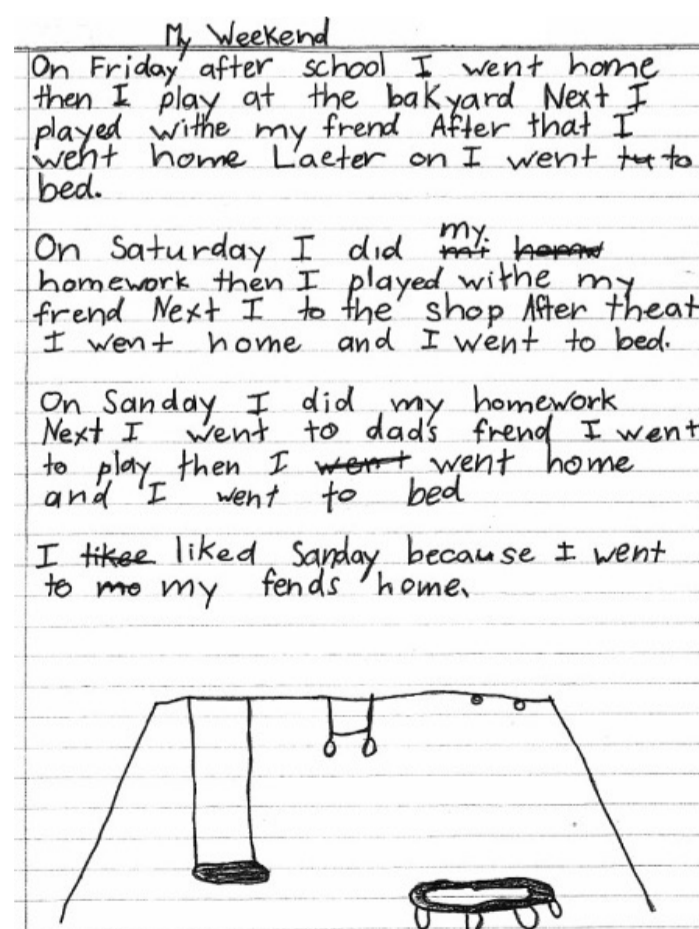 My Weekend
On Friday after school I went home
then I play at the bakyard Next I
played withe my frend After that I
went home Laeter on I went to
bed.
On Saturday I did my
homework then I played withe my
frend Next I to the shop After theat
I went home and I went to bed.
On Sanday I did my homework
Next I went to dads frend I went
to play then I went home
and I went to bed
I liked Sanday because I went
to my fends home.